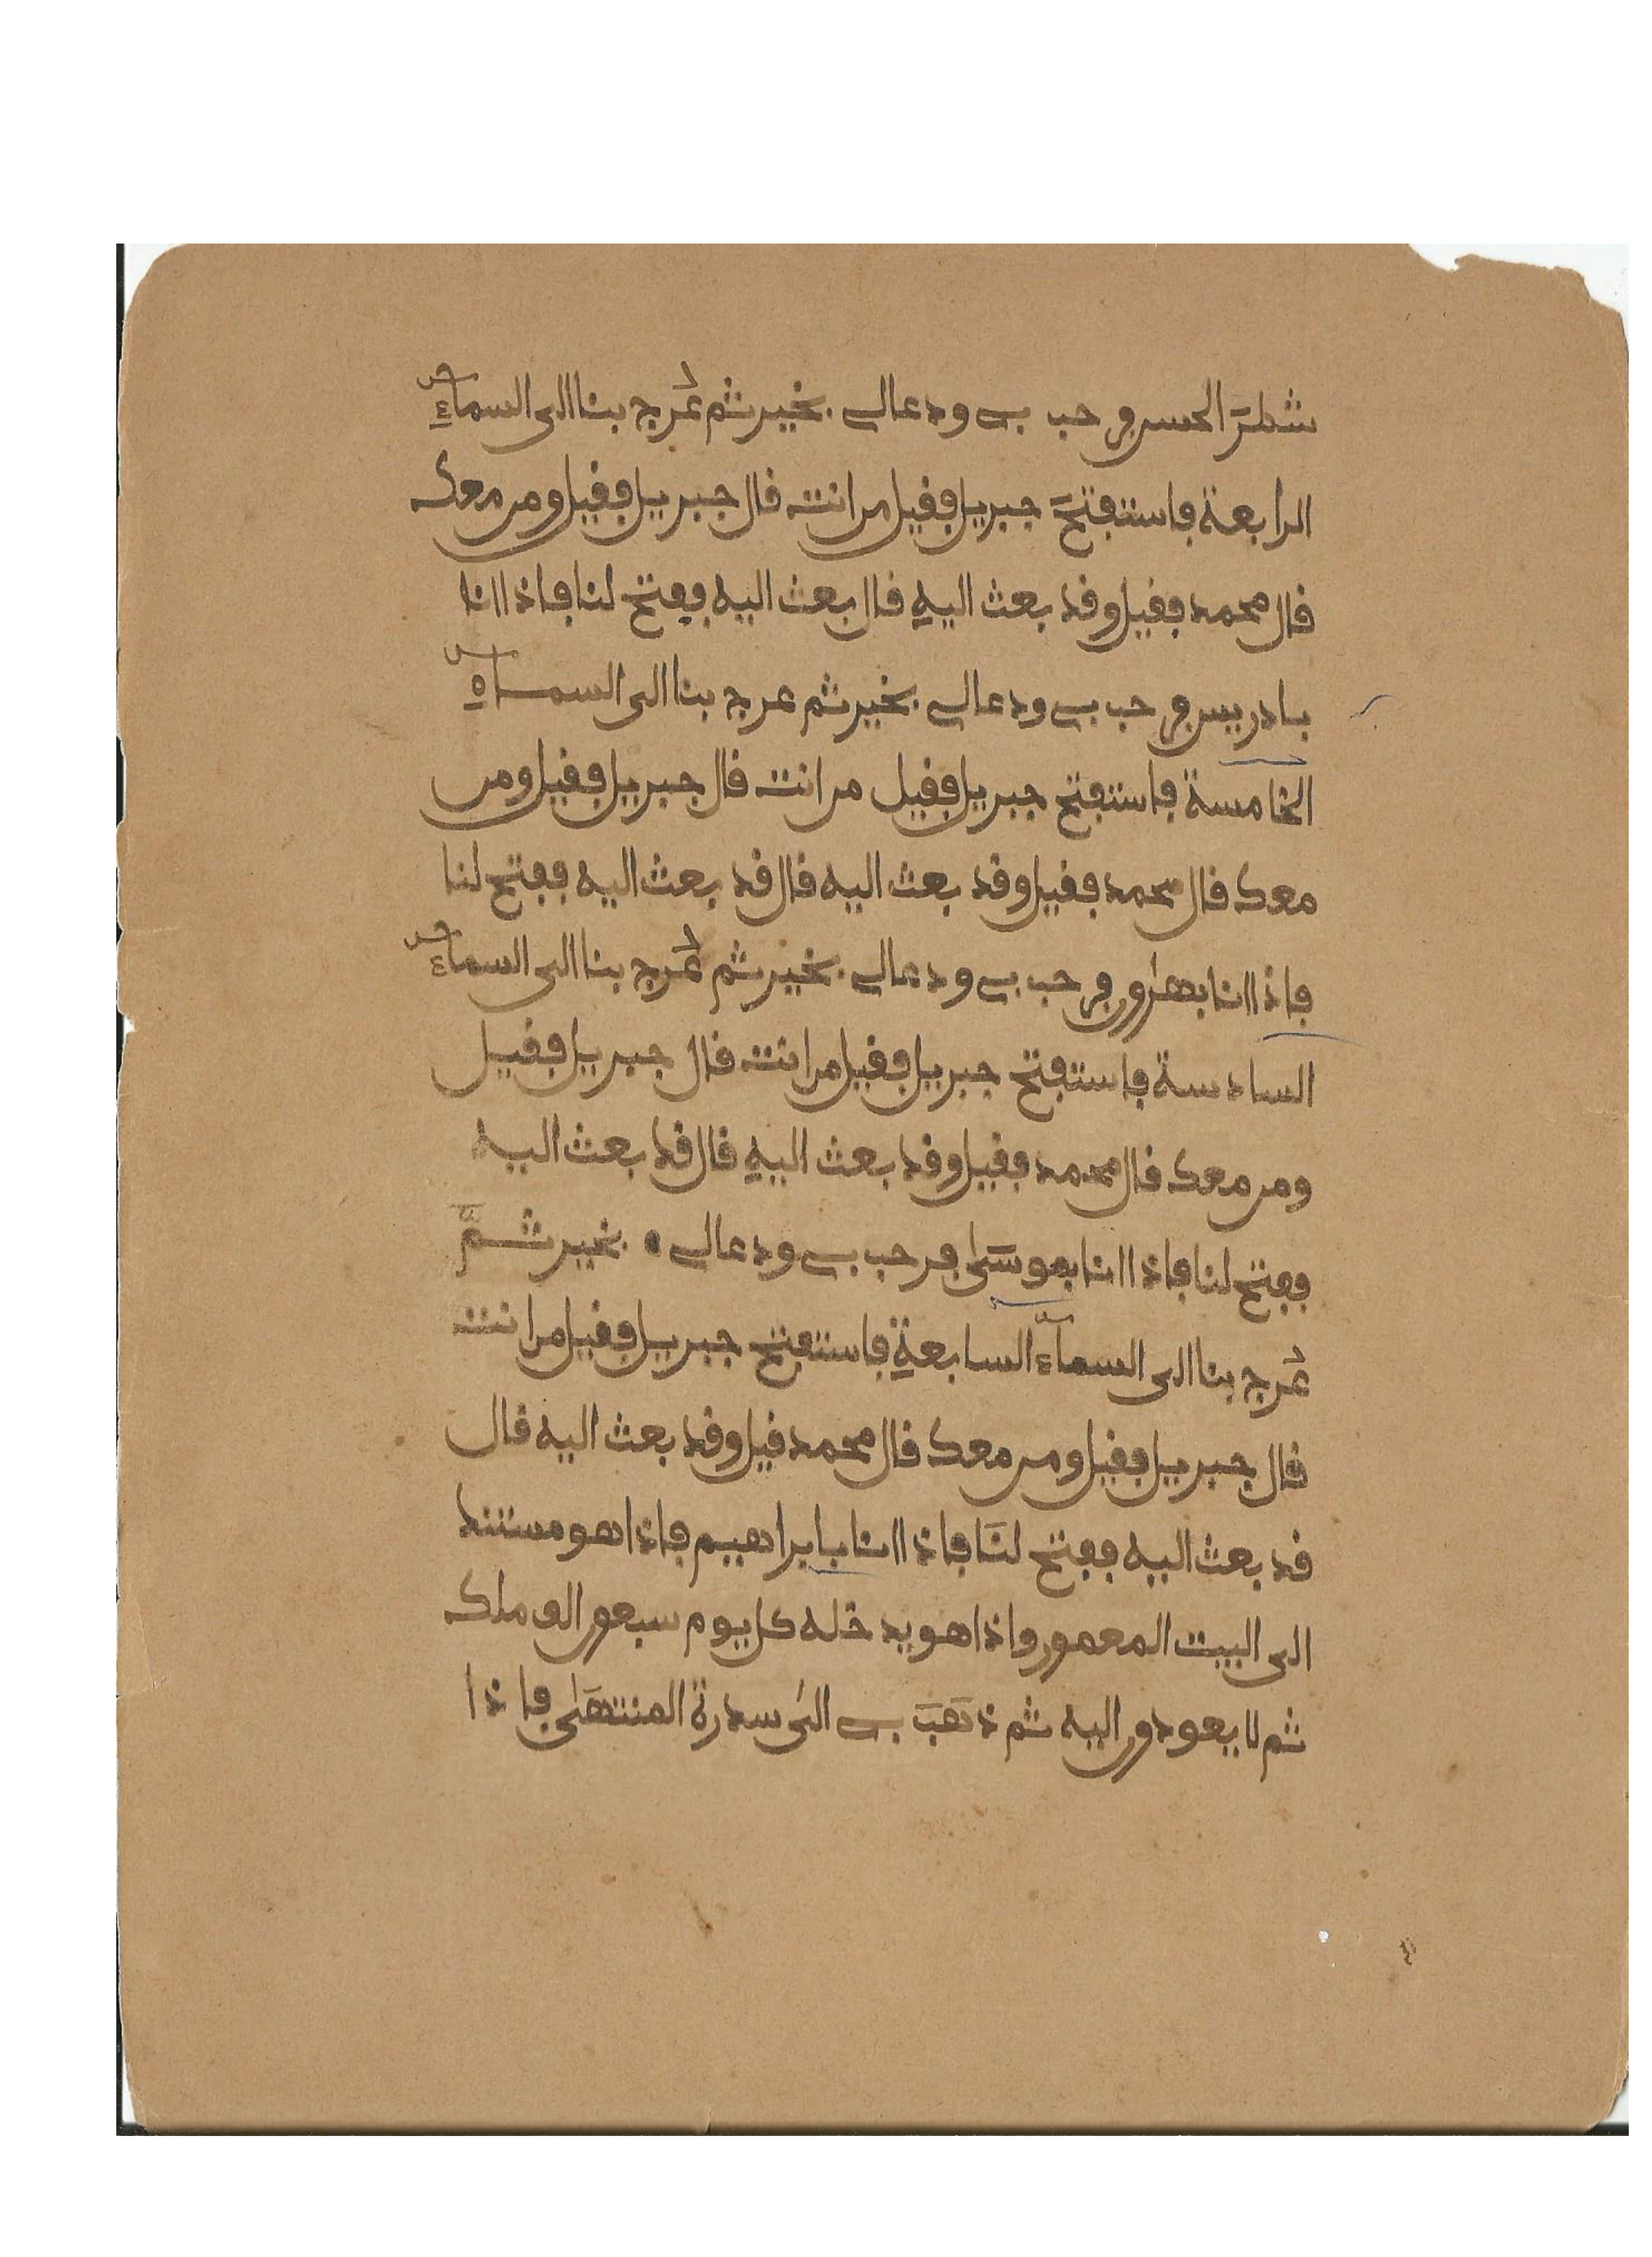 شطر الحسن فرحب بي ودعا لي بخير ثم عُرج بنا الى السماء
الرابعة فاستفتح جبريل فقيل من انت قال جبريل فقيل ومن معك
قال محمد فقيل وقد بعث اليه قال بعث اليه ففتح لنا فاذا انا
بادريس فرحب بي ودعا لي بخير ثم عرج بنا الى السماء
الخامسة فاستفتح جبريل فقيل من انت قال جبريل فقيل ومن
معك قال محمد فقيل وقد بعث اليه قال قد بعث اليه ففتح لنا
فاذا انا بهرون فرحب بي ودعا لي بخير ثم عُرج بنا الى السماء
السادسة فاستفتح جبريل فقيل من انت قال جبريل فقيل
ومن معك قال محمد فقيل وقد بعث اليه قال قد بعث اليه
ففتح لنا فاذا انا بموسى فرحب بي ودعا لي بخير ثم
عُرج بنا الى السمآء السابعة فاستفتح جبريل فقيل من انت
قال جبريل فقيل ومن معك قال محمد قيل وقد بعث اليه قال
قد بعث اليه ففتح لنَا فاذا انا بابراهيم فاذا هو مستند
الى البيت المعمور واذا هو يدخله كل يوم سبعون الف ملك
ثم لا يعودون اليه ثم ذهبَ بي الى سدرة المنتهَى فاذا